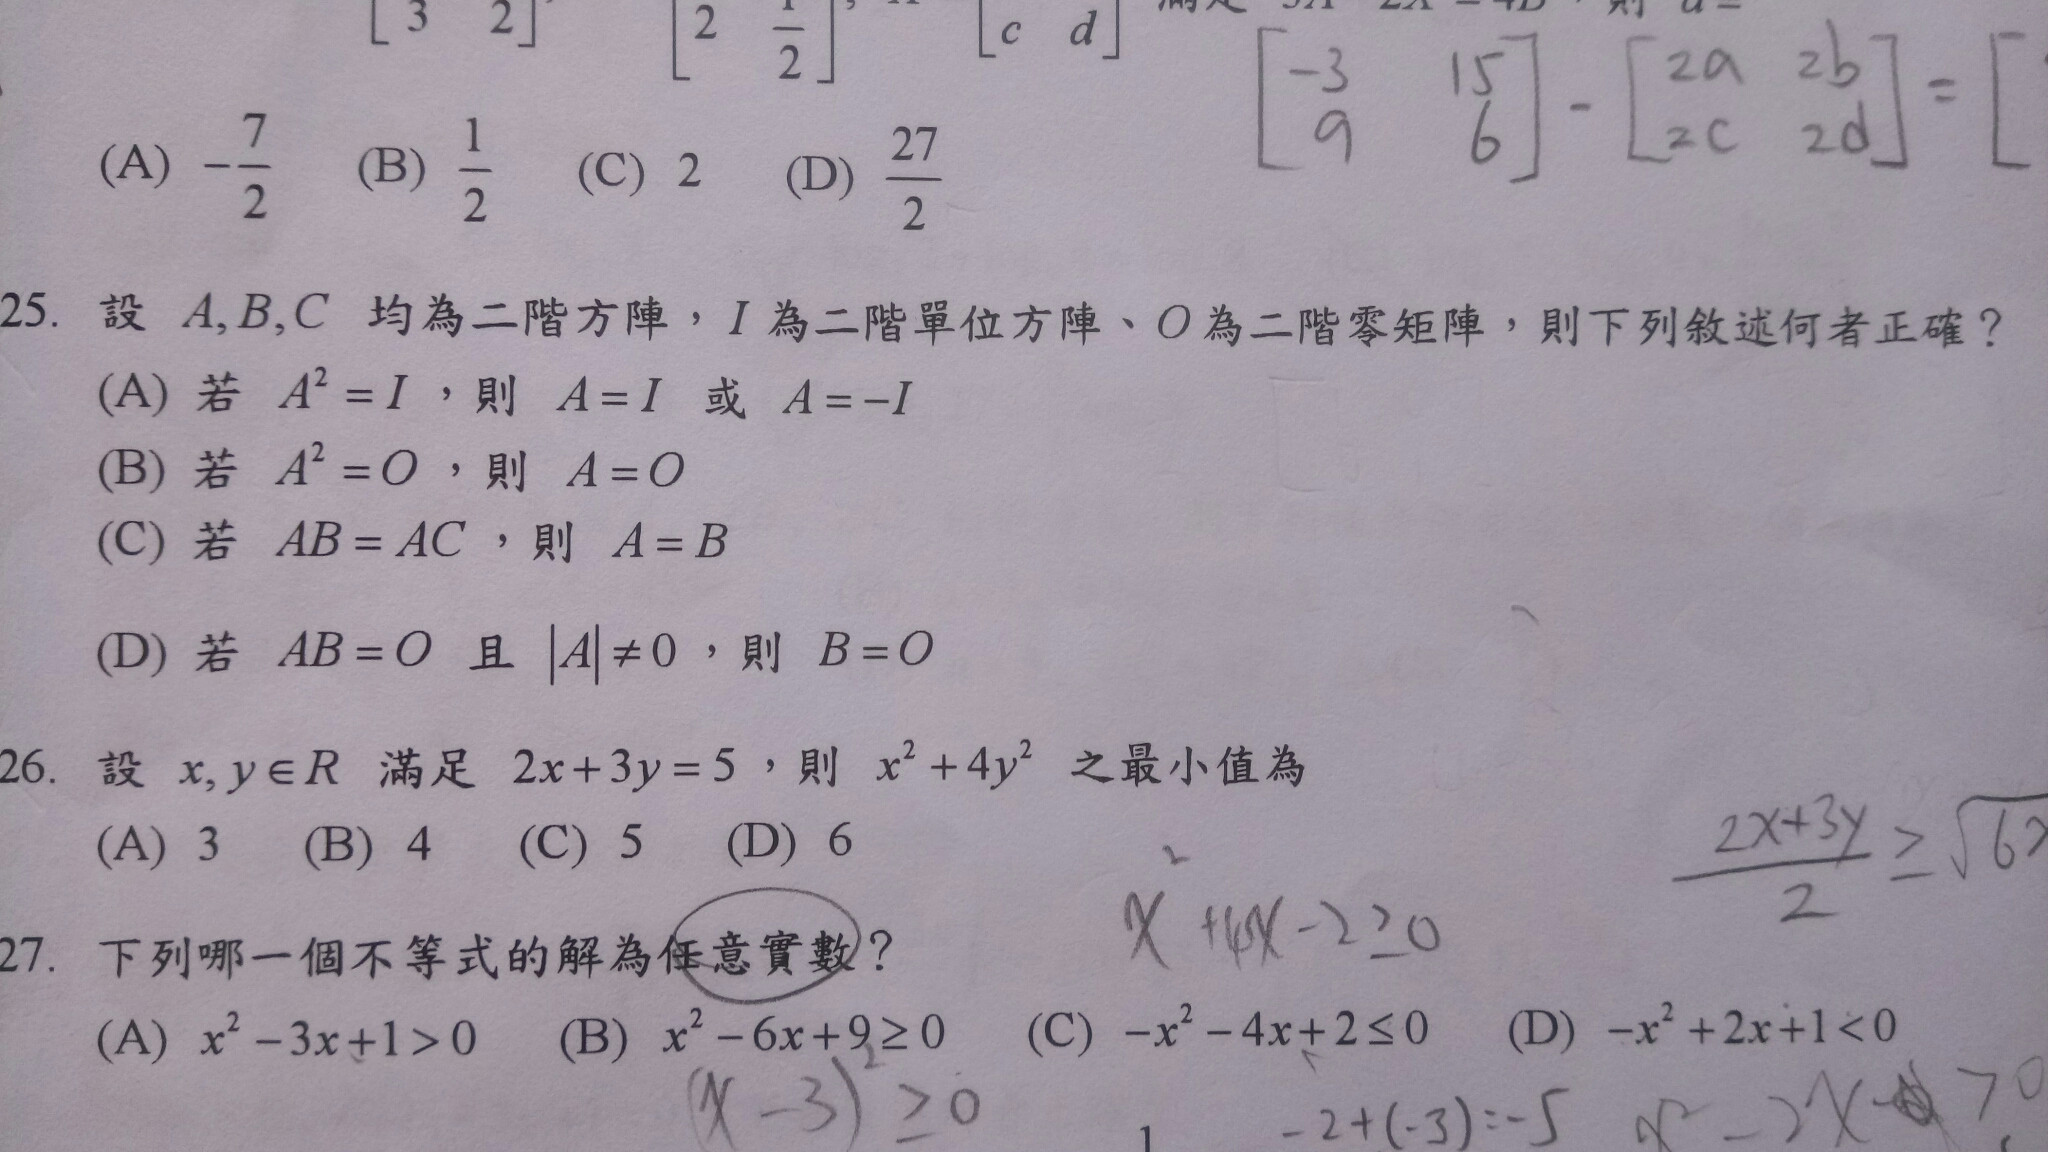 [3 2], [2 1/2], [c d] 滿足 3A-2X=4B，則 d=
[-3 15] - [2a 2b] = [
[9 6] [2c 2d]
(A) -7/2 (B) 1/2 (C) 2 (D) 27/2
25. 設 A,B,C 均為二階方陣，I 為二階單位方陣、O 為二階零矩陣，則下列敘述何者正確？
(A) 若 A²=I，則 A=I 或 A=-I
(B) 若 A²=O，則 A=O
(C) 若 AB=AC，則 A=B
(D) 若 AB=O 且 |A|≠0，則 B=O
26. 設 x,y∈R 滿足 2x+3y=5，則 x²+4y² 之最小值為
(A) 3 (B) 4 (C) 5 (D) 6
(2x+3y)/2 ≥ √6x
x²+4x-2≥0
27. 下列哪一個不等式的解為任意實數？
(A) x²-3x+1>0 (B) x²-6x+9≥0 (C) -x²-4x+2≤0 (D) -x²+2x+1<0
(x-3)²≥0
-2+(-3)=-5
x²-2x- >0
1